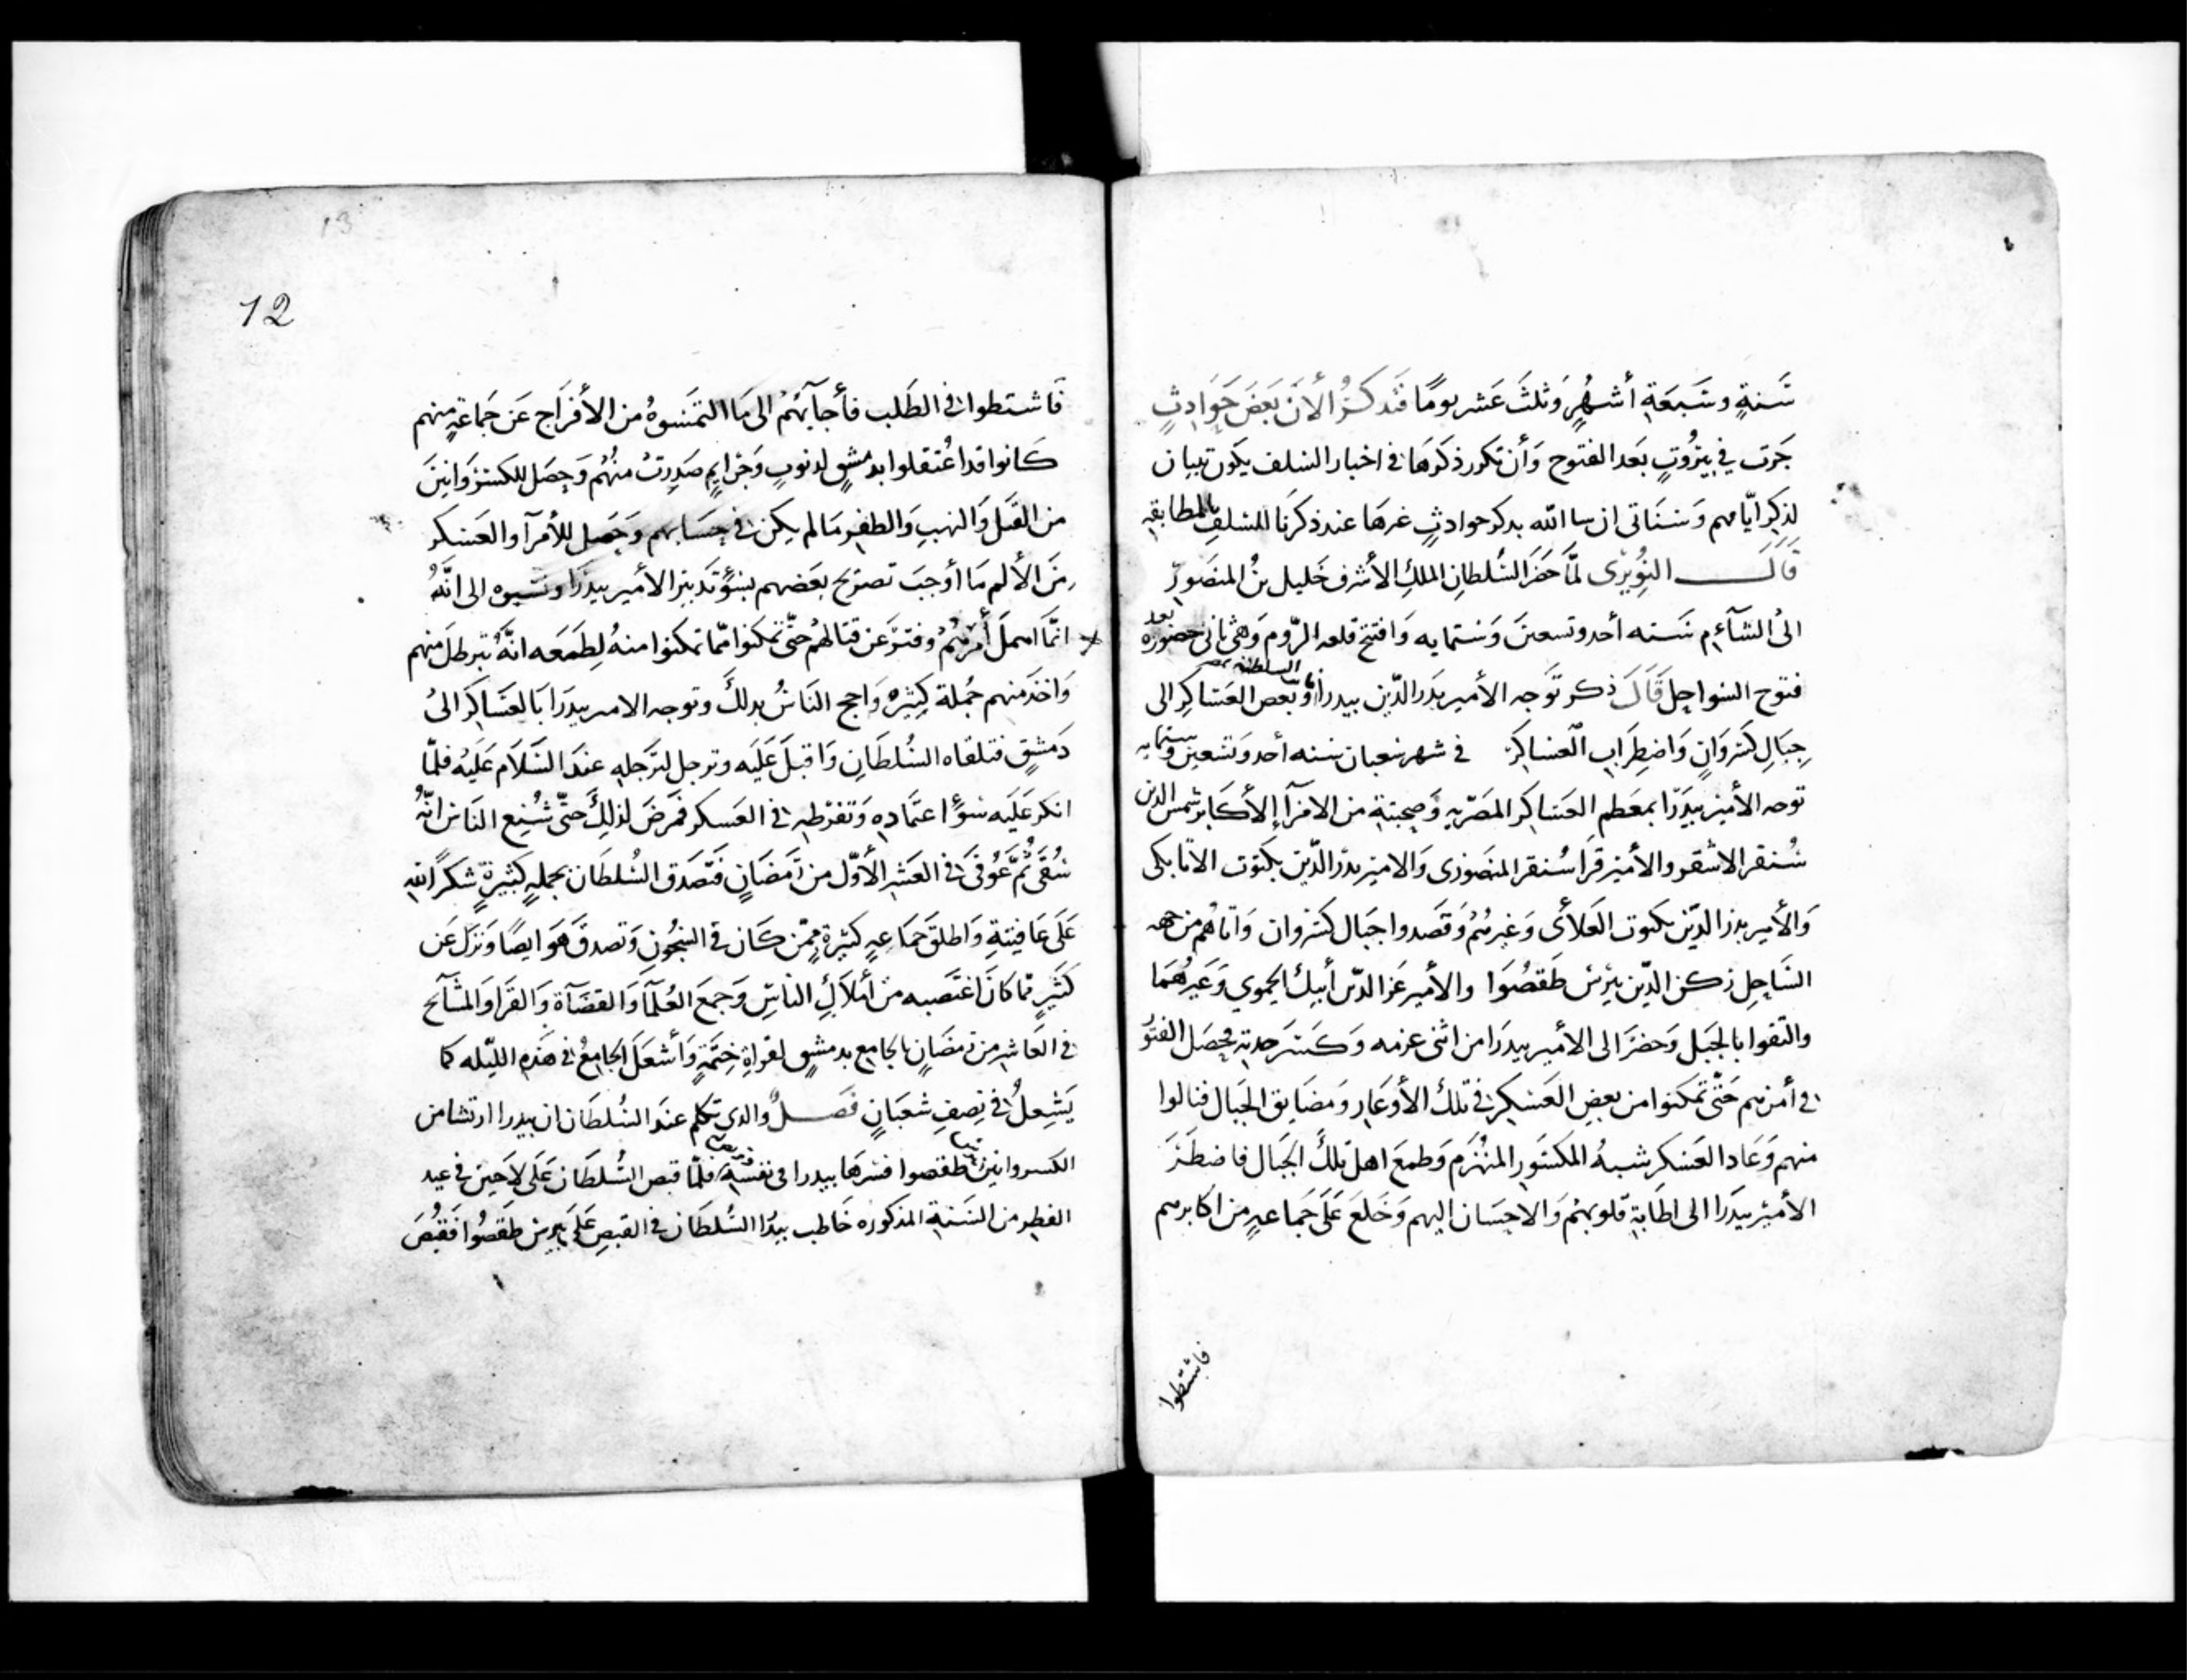 سَنةٍ وسَبعَةِ أشهُرٍ وَثلثَ عَشر يومًا فَنذكرُ الأنَ بَعَضَ حَوَادِثٍ
جَرَت في بيرُوتٍ بَعَد الفتوح وَأن تكرر ذكرَهَا في اخبار السَلف يكَون تبيان
لذِكرِ ايّامهم وَسَنَاتى ان سا الله بدكر حوادثٍ غيرهَا عند ذكرنَا للسَلفِ بالمطابقه
قَالَ النُوِيرْى لمَّا حَضَر السُلطانِ الملكِ الأشرف خَليل بنُ المنصَور
الىُ الشَآءم سَنه أحد وتسعينَ وَستمايه وَافتتح قلعه الرّوم وَهىَ ثانى حضوره بعد
فتوح السَواحِل قَالَ ذكر توَجه الأمير بَدَر الدّين بيدرا نايب السلطنه بمصر وبَعض العَسَاكِر الى
جِبَالِ كسَروَانٍ وَاضطِرَاب العسَاكِر في شهر شعبان سَنه أحد وَتسعين وستمايه
توجه الأمير بيَدَرّا بمعَظم العَسَاكر المصَريه وَصحبته من الامرآ إلأكَابر شمس الدين
سُنقر الاشقر والأمير قرَا سُنقر المنصَورى وَالامير بدر الدّين بكتوت الاتابكى
وَالأمير بدر الدّين بكتوت العَلائى وَغيرهُم وَقصَدوا جبَال كسَروان وَاتاهُم من جهه
السَاحِل ركن الدّين بيبرس طَقصُوَا والأمير عَز الدّين أيبك الحموي وَغيرهُمَا
والتقوا بالجَبل وَحضَر الى الأمير بيدرَا من اثنى عزمه وَكسَر حدته فحصَل الفتور
في أمرهم حَتّى تمكنوا من بعض العَسكر في تلك الأوعَار وَمضَايق الجبَال فنالوا
منهم وَعَاد العَسَكر شبهُ المكسَور المنهَزم وَطمعَ اهل تلكَ الجَبَال فاضطَرَ
الأميْر بيَدَرا الى اطَابة قلوبهُم وَالاحسَان اليهم وَخَلعَ عَلَى جَمَاعهٍ من اكابرهم
فاشتطوا
12
13
فَاشتطوا في الطَلب فأجابَهُم الى مَا التمَسَوهُ من الأفرَاج عَن جَمَاعةٍ منهم
كَانوا قد اعُتقلوا بدمشقٍ لدنوبٍ وَجَرايمٍ صَدِرتْ منهُم وَحصَل للكسَروَانينَ
من القَتل وَالنهبِ وَالظفر مَا لم يكن في حِسَابهم وَحَصل للأمرآ والعَسَكر
مَن الألم مَا أوجبَ تصَريح بعَضهم بسُوّ تدَبير الأمير بيدَرَا ونسَبوه الى انَّهُ
انمَّا اهملَ أمرَهُم وفترَ عَن قتالهُم حتّى تمكنوا ممّا تمكنوا منهُ لِطمَعَه انَّهُ تبرطلَ منهم
وَاخذَ منهم جُملة كثيرهْ وَاحج النَاسُ بدلكَ وتوجه الامير بيدَرَا بَالعَسَاكرْ الىُ
دَمشقٍ فتلقاه السُلطَانِ وَاقبلَ عَلَيَه وترجل لترَجلهِ عندَ السَلاَم عَليَه فلمَّا
انكر عَلَيَه سُوّ اعتَمَادهِ وَتفرَطهِ في العَسكر فمَرضَ لذلِكَ حتّى شُنِع النَاس انَّهُ
سُقىَ ثُمَّ عَوُفىَ في العَشر الأوّل من رَمضَانٍ فتصَدَق السُلطَان بحملهٍ كثيرةٍ شكَرًا لله
عَلَى عَافيتهِ وَاطلقَ جمَاعهٍ كثيرةٍ ممّن كَان في السُجُونِ وَتصدقَ هَوَ ايضًا وَنزَل عَن
كَثيرٍ ممّا كانَ اغتصَبه من أملاَكِ الناسِ وَجمعَ العُلمَآ وَالقضَآة وَالقرَا وَالمشَآيح
في العَاشر من رَمضَانٍ بالجَامِع بدمشقٍ لقراةِ خِتمَةٍ وَأشعَلَ الجَامعُ في هَذهِ الليّله كما
يَشعِلُ في نِصِفِ شعبَانٍ فصَلٌ والدي تكلم عندَ السُلطَان ان بيدرا ارتشا من
الكسروانين طقصوا فسَرهَا بيدرا في نفسَهِ فلمّا قبص السُلطَان عَلَى لاَجين في عيد
الفطِر من السَنةِ المذكوره خَاطب بيدَا السُلطَان في القبصِ عَلَى بيبرس طقصُوا فقبُضَ